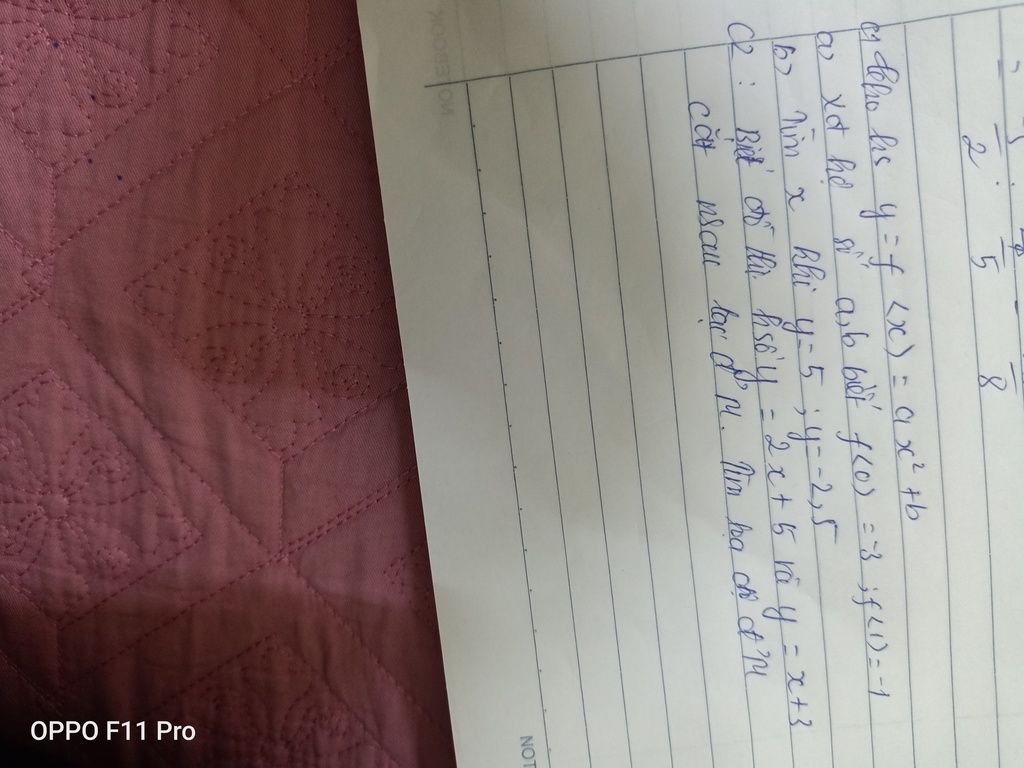 2 5 8
C1 Cho hs y = f <x> = ax² + b
a, xđ hệ số a, b biết f<0> = -3 ; f<1> = -1
b> Tìm x khi y = 5 ; y = -2,5
C2 : Biết đồ thị h số y = 2x + 5 và y = x + 3
cắt nhau tại đ' M. Tìm tọa độ đ' M
NOTEBOOK
NOT
OPPO F11 Pro